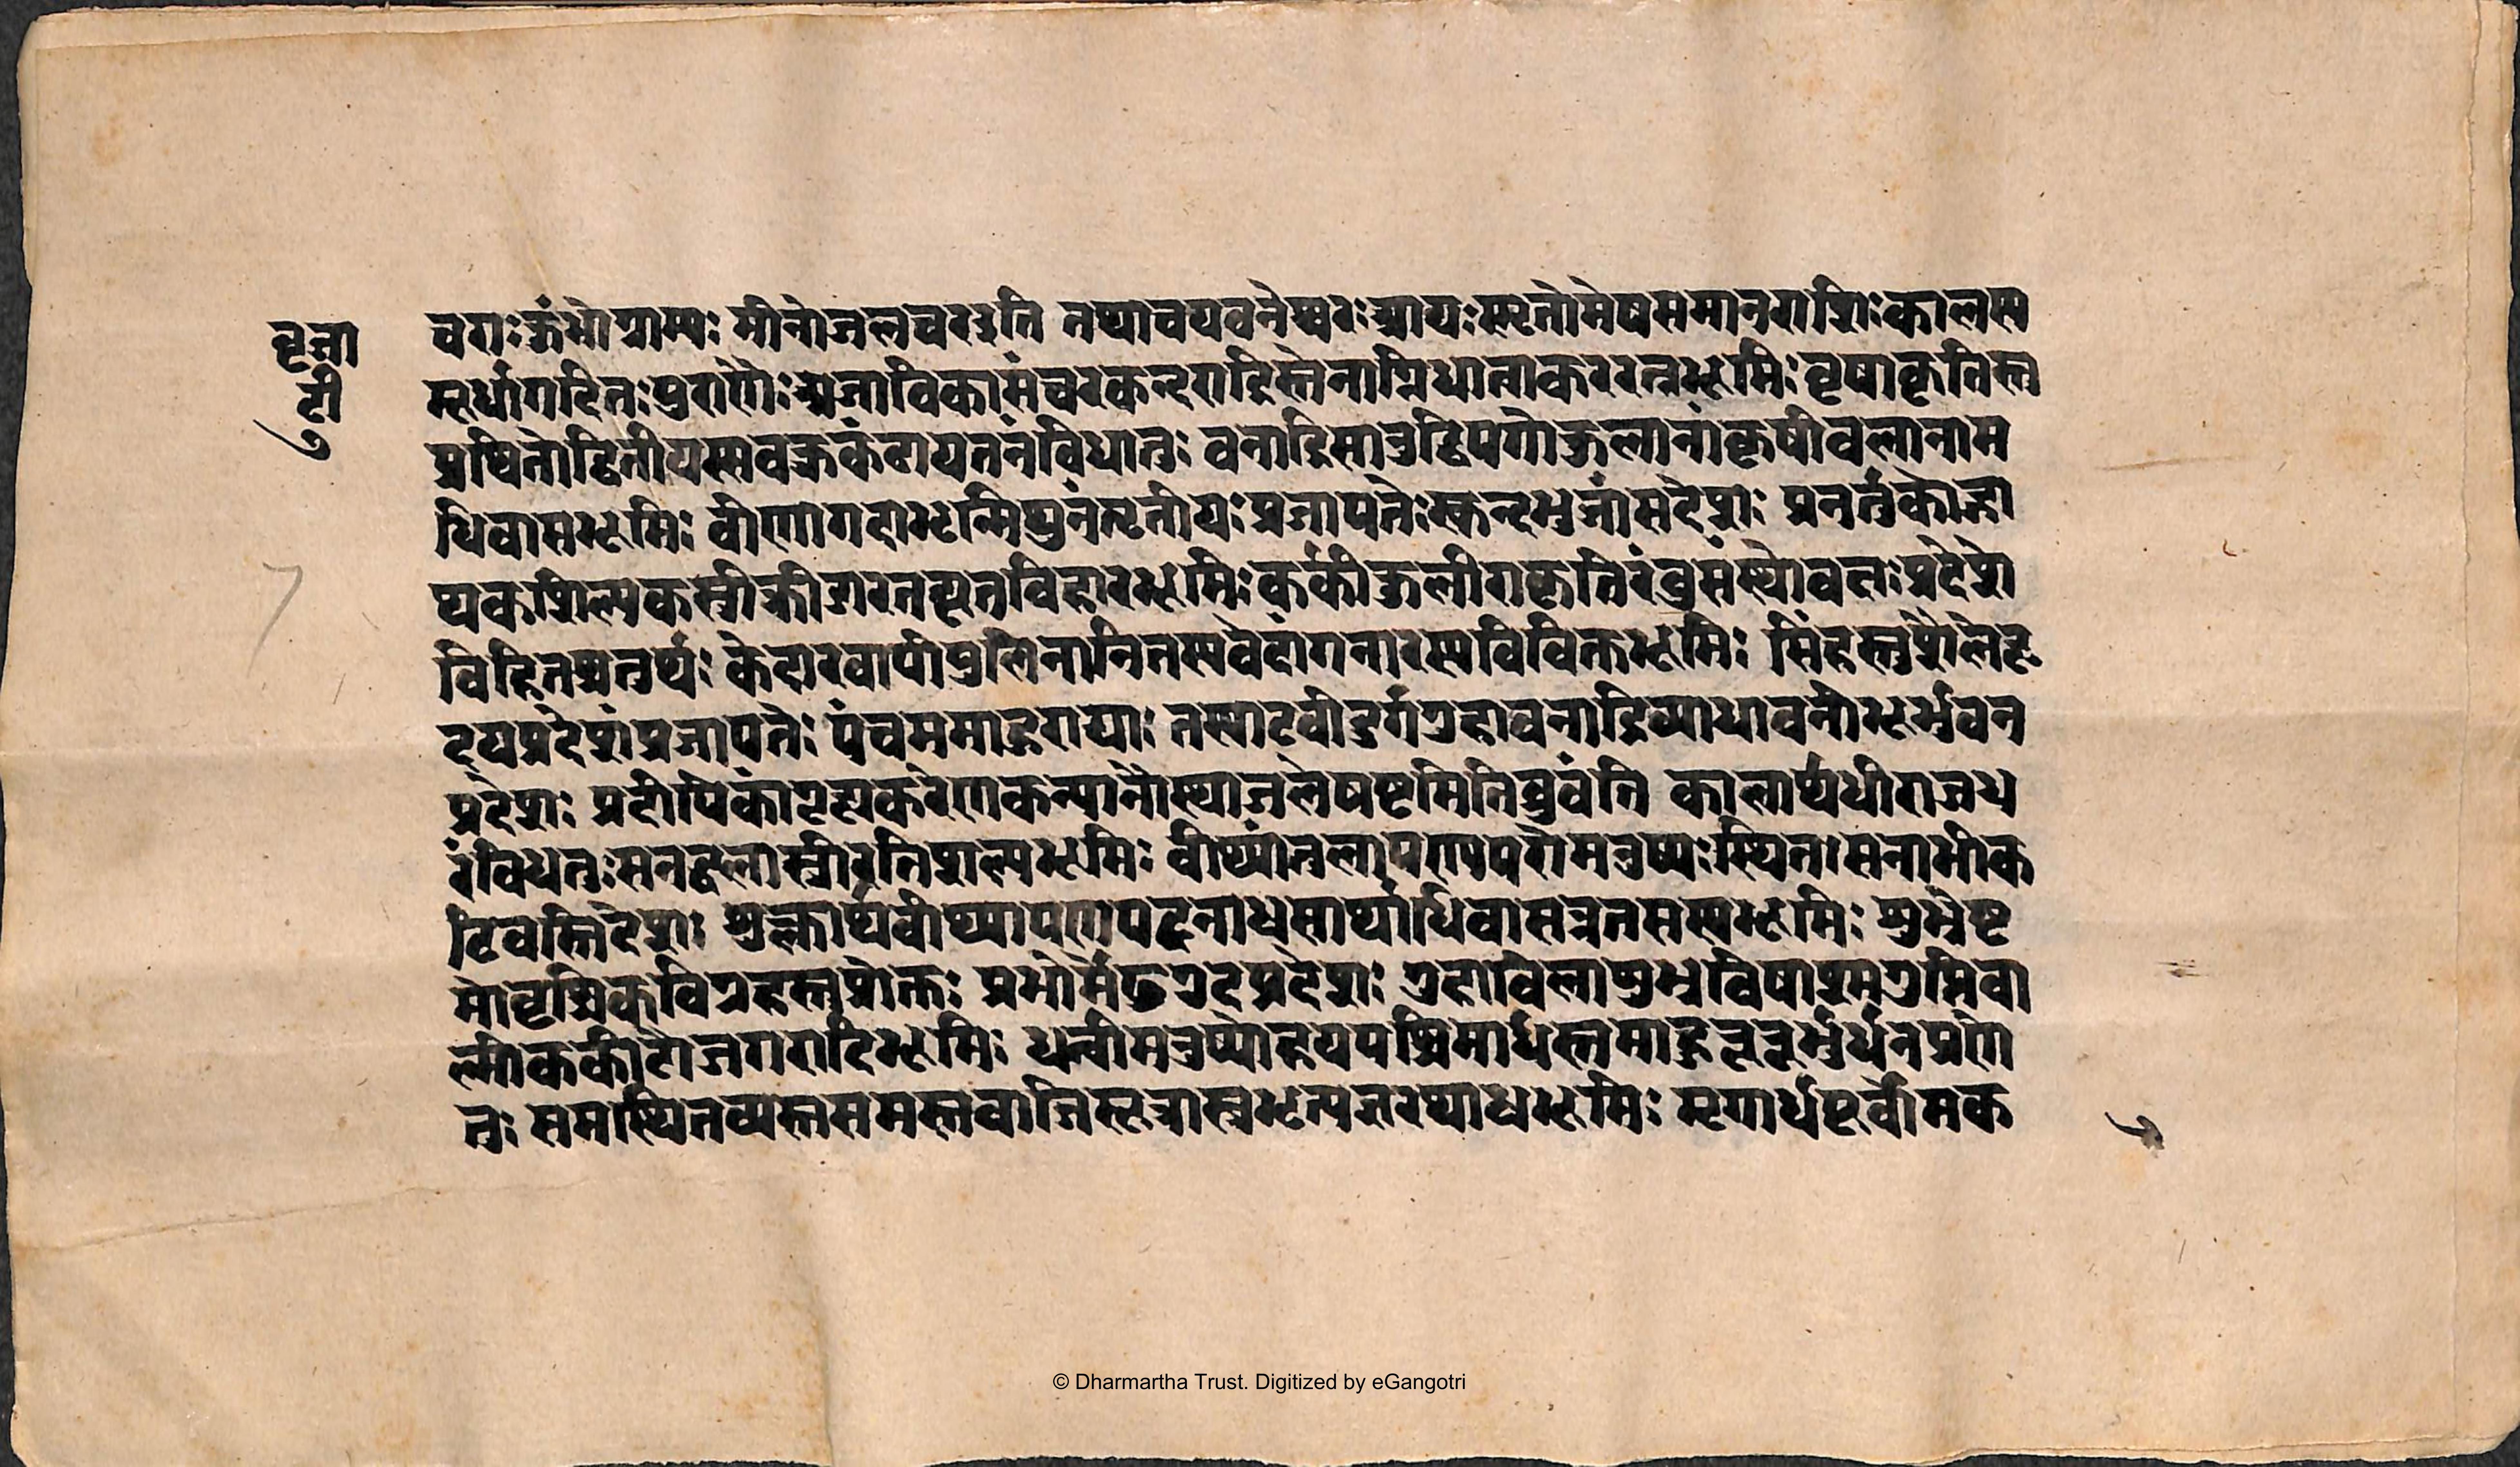 बृजा
टी
७
7
चराः कुंभो ग्राम्यः मीनो जलचर इति तथा च यवनेश्वरः आद्यः स्मृतो मेषसमानराशिः कालस्य
मूर्धा गदितः पुराणैः अजाविकासंचरकन्दराद्रिस्तेनाग्निधात्वाकररत्नभूमिः वृषाकृतिस्तु
प्रथितो द्वितीयस्सवक्त्रकंठायतनं विधातुः वनाद्रिसानुद्विपगोकुलानां कृषीवलानाम
धिवासभूमिः वीणागदाभृन्मिथुनं तृतीयः प्रजापतेः स्कन्दभुजांसदेशः प्रनर्तको ज्ञा
प्यकशिल्पकस्त्रीक्रीडारतद्यूतविहारभूमिः कर्की कुलीराकृतिरंबुसंस्थो वक्षः प्रदेशो
विहितश्चतुर्थः केदारवापीपुलिनानि तस्य वेदांगनारस्य विविक्तभूमिः सिंहस्तु शैले हृ
दयप्रदेशं प्रजापतेः पंचममाहुराद्याः तस्याटवीदुर्गगुहावनाद्रिव्याधावनीभूर्भुवन
प्रदेशाः प्रदीपिकां गृह्य करेण कन्या नौस्था जले षष्ठमिति ब्रुवंति कालार्थधीरा जठ
रं विधतुः सनद्वलास्त्रीरतिशल्पभूमिः वीथ्यां तुलापण्यपरो मनुष्यः स्थितः सनाभीक
टिवस्तिदेशः शुक्लार्थवीथ्यापणपट्टनाध्वसार्थाधिवासन्नतसस्यभूमिः शुभ्रेष्ट
मो वृश्चिकविग्रहस्तु प्रोक्तः प्रभोर्मेढ्रगुदप्रदेशः गुहाविलाशुभ्रविषाश्मगुप्तिवा
ल्मीककीटाजगरादिभूमिः धन्वी मनुष्यो हयपश्चिमार्धस्तमाहुरूरूर्भुर्धनप्रणे
तः समस्थितव्यस्तसमस्तवाजिसूत्रास्त्रभृन्यज्ञरथाध्वभूमिः मृगार्धपूर्वो मक
© Dharmartha Trust. Digitized by eGangotri